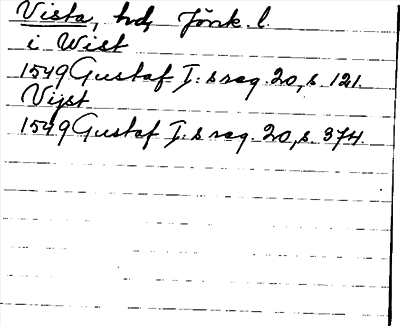 Vista, hd, Jönk. l.
i Wist
1549 Gustaf I:s reg. 20, s. 121.
Vijst
1549 Gustaf I:s reg. 20, s. 374.